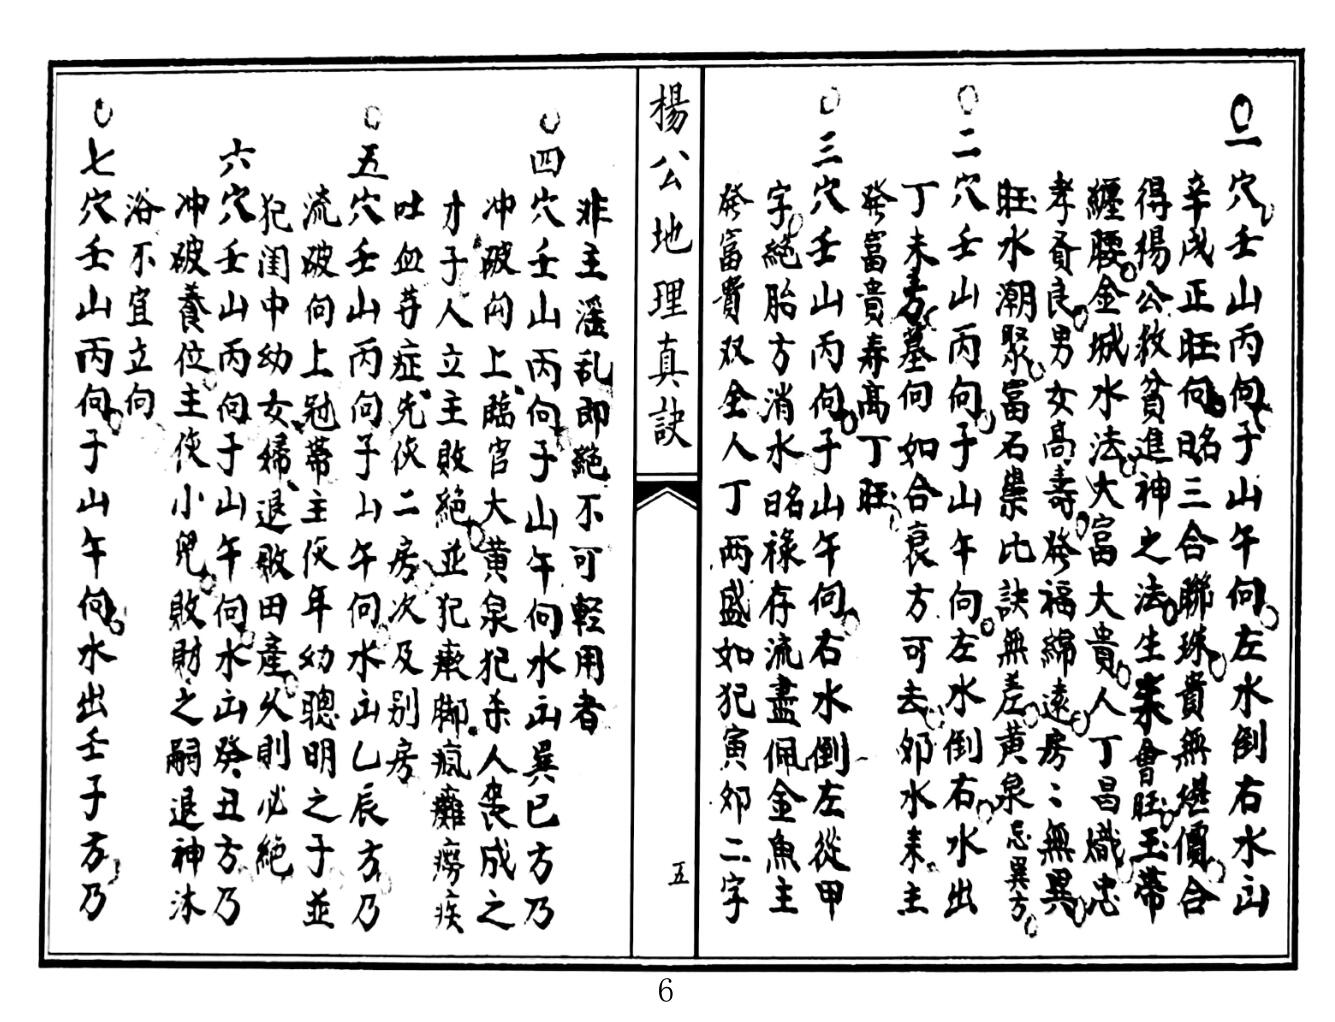 一穴壬山丙向子山午向左水倒右水出
辛戌正旺向曰名三合聯珠貴無堪價合
得楊公救貧進神之法生來會旺玉帶
纏腰金城水法大富大貴人丁昌熾忠
孝賢良男女高壽發福綿遠房〻無異
旺水潮聚富石崇比訣無差黃泉忌巽方
二穴壬山丙向子山午向左水倒右水出
丁未方墓向如合衰方可去卯水耒主
發富貴壽高丁旺
三穴壬山丙向子山午向右水倒左從甲
字絕胎方消水曰名祿存流盡佩金魚主
發富貴双全人丁两盛如犯寅卯二字
楊公地理真訣
五
非主滛乱即絕不可輕用者
四穴壬山丙向子山午向水出巽巳方乃
冲破向上臨官大黃泉犯杀人喪成之
才子人立主敗絕並犯瘶脚瘋癱癆疾
吐血荨症先傷二房次及别房
五穴壬山丙向子山午向水出乙辰方乃
流破向上冠帶主傷年幼聰明之子並
犯闺中幼女婦退敗田產久則必絕
六穴壬山丙向子山午向水出癸丑方乃
冲破養位主傷小兒敗財之嗣退神沐
浴不宜立向
七穴壬山丙向子山午向水出壬子方乃
6